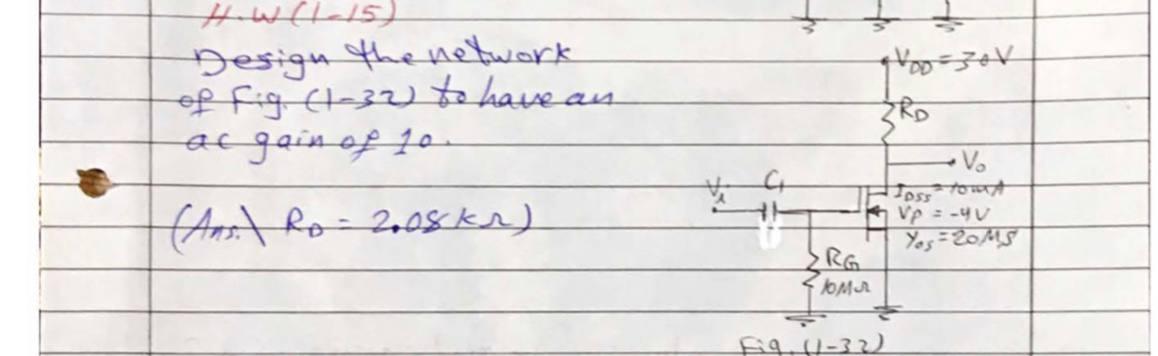 H.W(1-15)
Design the network
of Fig. (1-32) to have an
ac gain of 10.
(Ans.\ RD = 2.08 kΩ)
VDD = 30V
RD
Vo
Vi
C1
IDSS = 10mA
VP = -4V
Yos = 20MS
RG
10MΩ
Fig. (1-32)